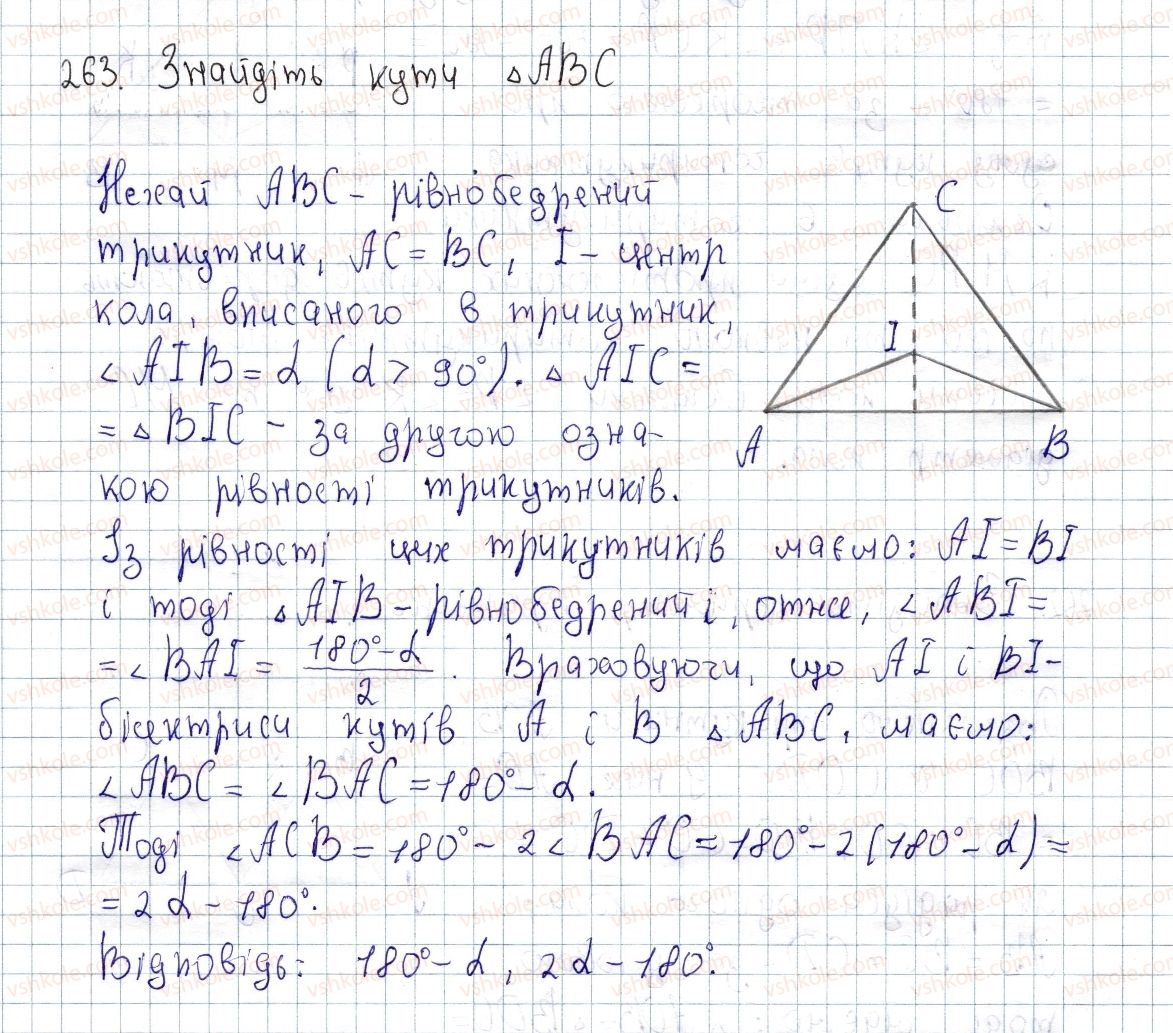 263. Знайдіть кути △ABC
Нехай ABC – рівнобедрений
трикутник, AC = BC, I – центр
кола, вписаного в трикутник,
∠AIB = α (α > 90°). △ AIC =
= △ BIC – за другою озна-
кою рівності трикутників.
Із рівності цих трикутників маємо: AI = BI
і тоді △AIB – рівнобедрений і, отже, ∠ABI =
= ∠BAI = (180° – α)/2. Враховуючи, що AI і BI –
бісектриси кутів A і B △ABC, маємо:
∠ABC = ∠BAC = 180° – α.
Тоді ∠ACB = 180° – 2∠BAC = 180° – 2(180° – α) =
= 2α – 180°.
Відповідь: 180° – α, 2α – 180°.
C
I
A
B